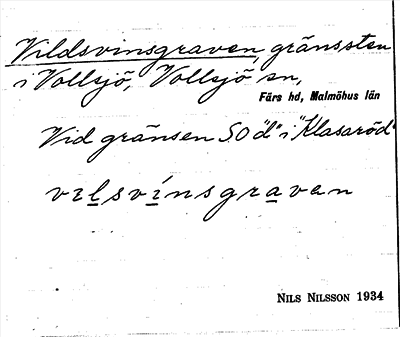 Vildsvinsgraven, gränssten
i Vollsjö, Vollsjö sn,
Färs hd, Malmöhus län
Vid gränsen S.O "d" i "Klasaröd"
vɪlsvínsgravən
NILS NILSSON 1934